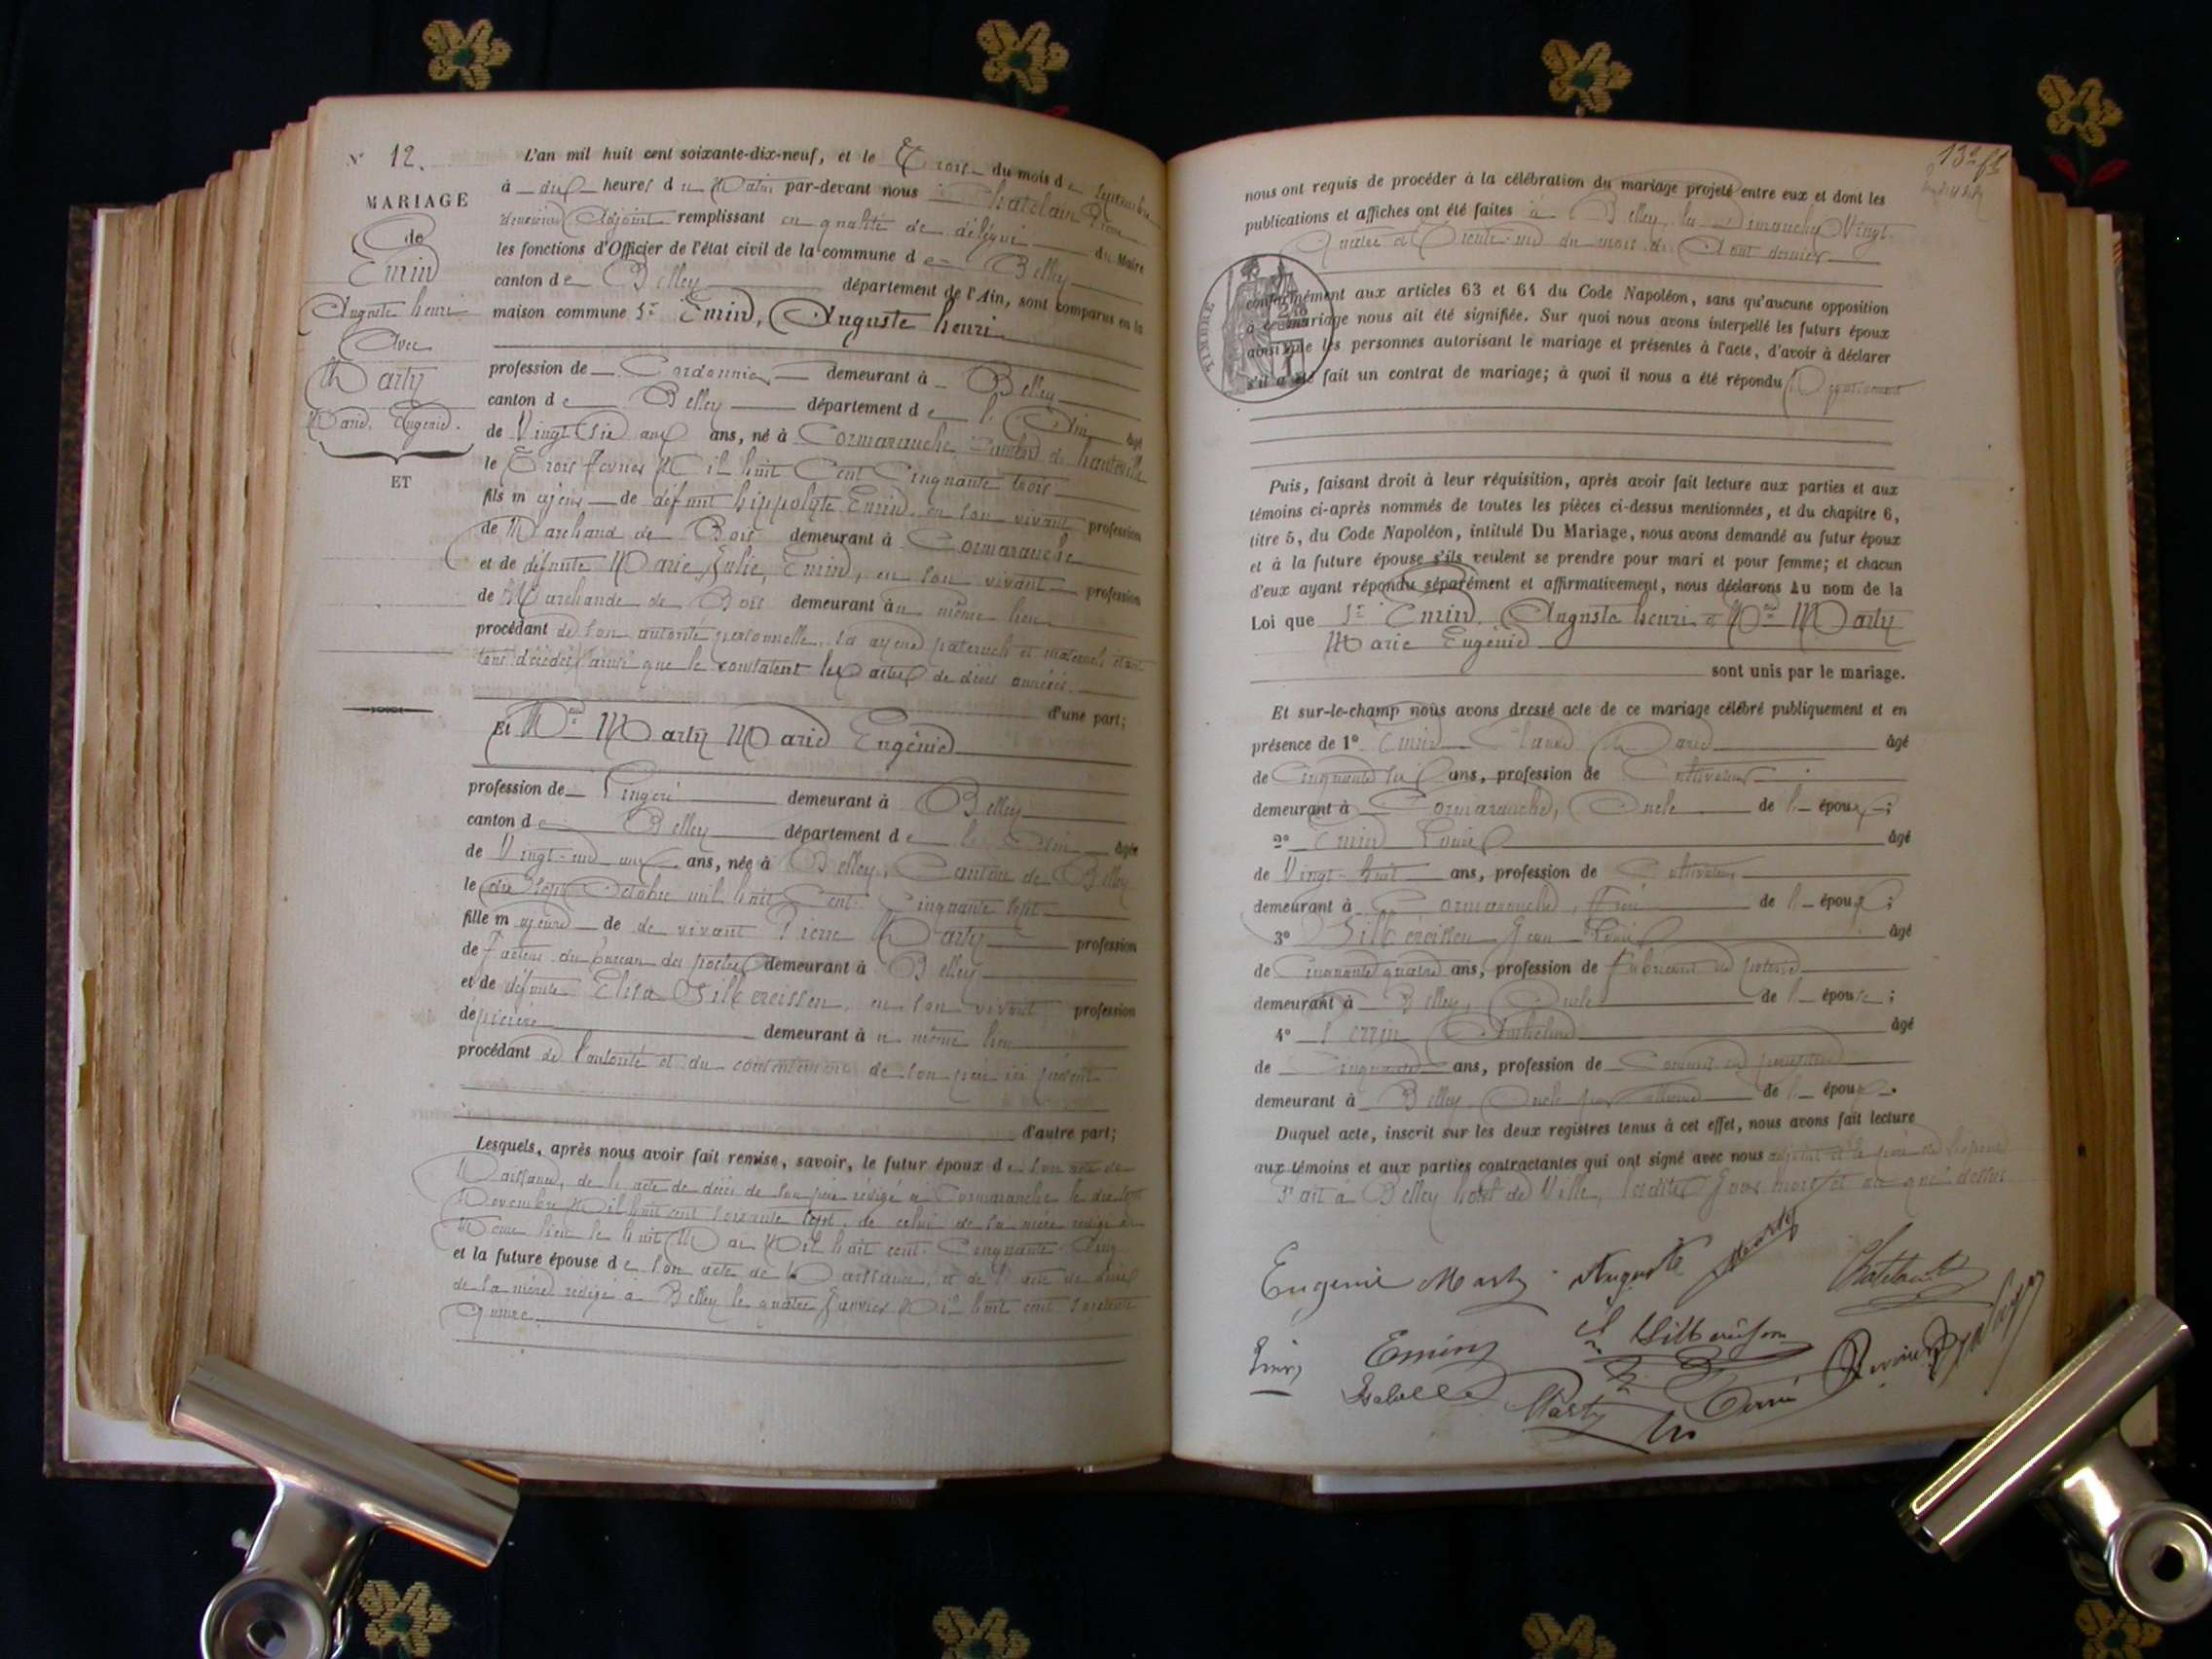 N° 12.
MARIAGE
de
Emin
Auguste henri
Avec
Marty
Marie Eugénie.
ET
L'an mil huit cent soixante-dix-neuf, et le Trois du mois de Septembre
à dix heures du Matin par-devant nous Chatelain
Adjoint remplissant en qualité de délégué du Maire
les fonctions d'Officier de l'état civil de la commune de Belley
canton de Belley département de l'Ain, sont comparus en la
maison commune Sr Emin, Auguste henri
profession de Cordonnier demeurant à Belley
canton de Belley département de l'Ain âgé
de Vingt Six ans ans, né à Cormaranche, de hauteville
le Trois fevrier Mil huit Cent Cinquante trois
fils majeur de défunt hippolyte Emin, en son vivant profession
de Marchand de Bois demeurant à Cormaranche
et de défunte Marie Julie, Emin, en son vivant profession
de Marchande de Bois demeurant au même lieu
procédant de son autorité personnelle, ses ayeux paternels et maternels étant
tous décédés ainsi que le constatent les actes de décès annexés.
d'une part;
Et Melle Marty Marie Eugénie
profession de Lingère demeurant à Belley
canton de Belley département de l'Ain âgée
de Vingt-un ans ans, née à Belley, Canton de Belley
le dix Sept Octobre mil huit Cent Cinquante Sept
fille majeure de de vivant Pierre Marty profession
de facteur du bureau des postes demeurant à Belley
et de défunte Elisa Silbereissen, en son vivant profession
dépicière demeurant au même lieu
procédant de l'autorité et du consentement de son père ici présent
d'autre part;
Lesquels, après nous avoir fait remise, savoir, le futur époux de son acte de
Naissance, de l'acte de décès de son père rédigé à Cormaranche le dix sept
Novembre Mil huit cent soixante sept, de celui de sa mère rédigé au
Même lieu le huit Mai Mil huit cent Cinquante Cinq
et la future épouse de son acte de Naissance, et de l'acte de décès
de sa mère rédigé à Belley le quatre Janvier Mil huit cent soixante
quinze.
13e ft
nous ont requis de procéder à la célébration du mariage projeté entre eux et dont les
publications et affiches ont été faites à Belley les Dimanches Vingt-
Quatre et Trente-un du mois de Aout dernier
TIMBRE
conformément aux articles 63 et 64 du Code Napoléon, sans qu'aucune opposition
à ce mariage nous ait été signifiée. Sur quoi nous avons interpellé les futurs époux
ainsi que les personnes autorisant le mariage et présentes à l'acte, d'avoir à déclarer
s'il a été fait un contrat de mariage; à quoi il nous a été répondu Négativement
Puis, faisant droit à leur réquisition, après avoir fait lecture aux parties et aux
témoins ci-après nommés de toutes les pièces ci-dessus mentionnées, et du chapitre 6,
titre 5, du Code Napoléon, intitulé Du Mariage, nous avons demandé au futur époux
et à la future épouse s'ils veulent se prendre pour mari et pour femme; et chacun
d'eux ayant répondu séparément et affirmativement, nous déclarons Au nom de la
Loi que Sr Emin, Auguste henri et Melle Marty
Marie Eugénie
sont unis par le mariage.
Et sur-le-champ nous avons dressé acte de ce mariage célébré publiquement et en
présence de 1° Emin Marie âgé
de Cinquante six ans, profession de Cultivateur
demeurant à Cormaranche, Oncle de l'époux;
2° Emin Louis âgé
de Vingt-huit ans, profession de Cultivateur
demeurant à Cormaranche, frère de l'époux;
3° Silbereissen Jean Louis âgé
de Cinquante quatre ans, profession de fabricant de poterie
demeurant à Belley, Oncle de l'épouse;
4° Perrin Anthelme âgé
de Cinquante ans, profession de
demeurant à Belley, Oncle par alliance de l'épouse.
Duquel acte, inscrit sur les deux registres tenus à cet effet, nous avons fait lecture
aux témoins et aux parties contractantes qui ont signé avec nous adjoint et le père de l'épouse
Fait à Belley hotel de Ville, lesdits Jour mois et an que dessus
Eugenie Marty Auguste Chatelain
Emin Emin Silbereissen
Isabelle Marty Perrin